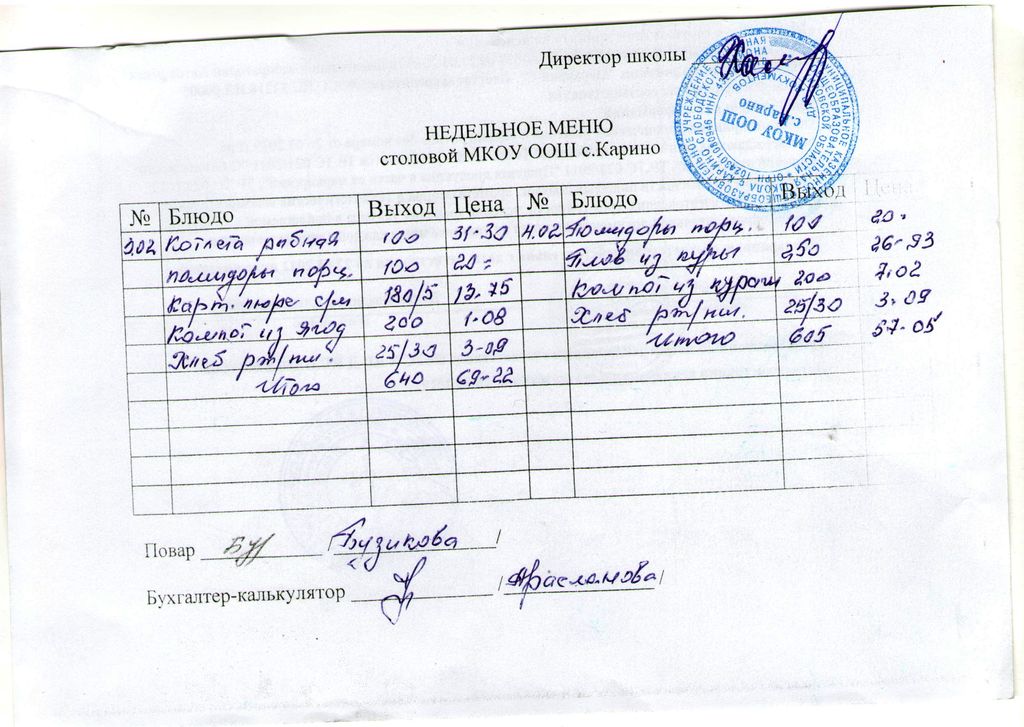 Директор школы
МКОУ ООШ
с.Карино
НЕДЕЛЬНОЕ МЕНЮ
столовой МКОУ ООШ с.Карино
№ Блюдо Выход Цена № Блюдо Выход Цена
3.02 Котлета рыбная 100 31-30 4.02 Помидоры порц. 100 20-
помидоры порц. 100 20= Плов из куры 250 26-93
Карт. пюре с/м 180/5 13.75 Компот из кураги 200 7-02
Компот из ягод 200 1-08 Хлеб рж/пш. 25/30 3-09
Хлеб рж/пш. 25/30 3-09 Итого 605 57-05
Итого 640 69-22
Повар / Бузикова /
Бухгалтер-калькулятор / Арасланова /